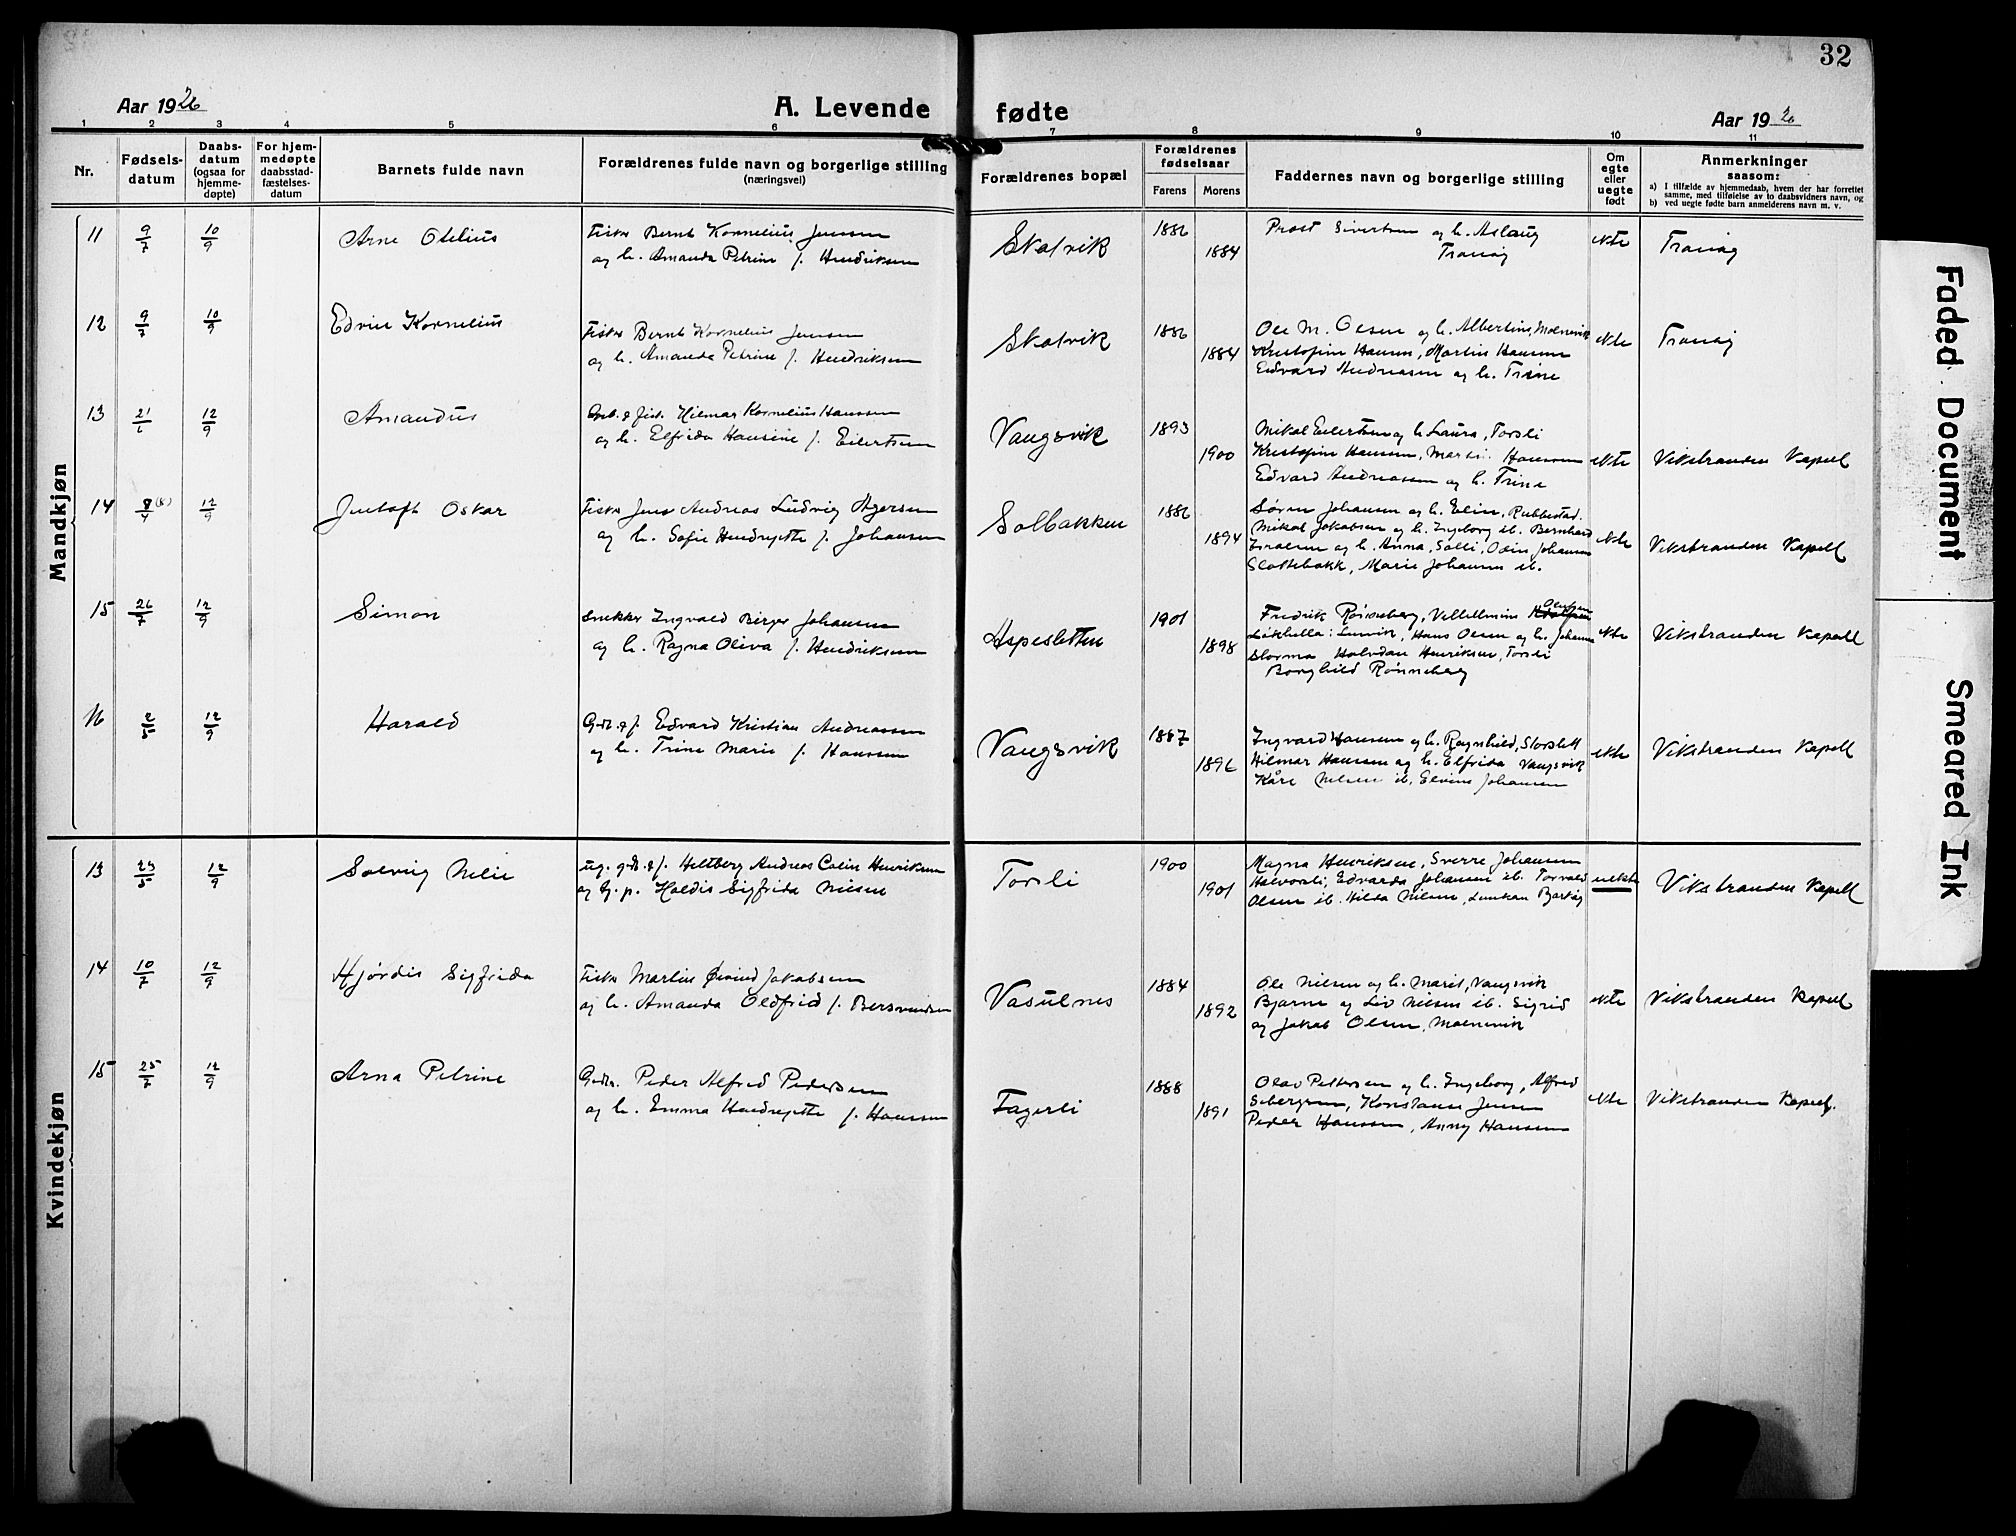 32
Aar 1926
A. Levende fødte
Aar 1926
1 2 3 4 5 6 7 8 9 10 11
Nr.
Fødsels-
datum
Daabs-
datum
(ogsaa for
hjemme-
døpte)
For hjem-
medøpte
daabsstad-
fæstelses-
datum
Barnets fulde navn
Forældrenes fulde navn og borgerlige stilling
(næringsvei)
Forældrenes bopæl
Forældrenes
fødselsaar
Farens Morens
Faddernes navn og borgerlige stilling
Om
egte
eller
uegte
født
Anmerkninger
saasom:
a) I tilfælde av hjemmedaab, hvem der har forrettet
samme, med tilføielse av to daabsvidners navn, og
b) ved uegte fødte barn anmelderens navn m. v.
Mandkjøn
11 9/7 10/9 Arne Otelius
Fisker Bernt Kornelius Jenssen
og h. Amanda Petrine f. Hendriksen
Skatvik 1886 1884
Prost Sivertsen og h. Aslaug
Tranøy
ekte Tranøy
12 9/7 10/9 Edvin Kornelius
Fisker Bernt Kornelius Jensen
og h. Amanda Petrine f. Hendriksen
Skatvik 1886 1884
Ole M. Olsen og h. Albertine, Molnevik
Kristofine Hansen, Martin Hansen
Edvard Andreasen og h. Trine
ekte Tranøy
13 21/6 12/9 Amandus
Gbr. & fisk. Hilmar Kornelius Hanssen
og h. Elfrida Hansine f. Eilertsen
Vangsvik 1893 1900
Mikal Eilertsen og h. Laura, Torsli
Kristofine Hansen, Martin Hansen
Edvard Andreassen og h. Trine
ekte Vikstranden Kapell
14 8/4 (8) 12/9 Gustaft Oskar
Fisker Jens Andreas Ludvig Agersen
og h. Sofie Hendrejette f. Johansen
Solbakken 1886 1894
Søren Johansen og h. Elin, Rubbestad.
Mikal Jakobsen og h. Ingeborg ib. Bernhard
Israelsen og h. Anna, Solli, Odin Johansen
Slottebakk, Marie Johansen ib.
ekte Vikstranden Kapell
15 26/7 12/9 Simon
Snekker Ingvald Birger Johansen
og h. Ragna Oliva f. Hendriksen
Aspesletten 1901 1898
Fredrik Rønneberg, Vellelmine Olufsen
Hans Olsen og h. Johanna
Halvdan Henriksen, Torsli
Borghild Rønneberg
ekte Vikstranden Kapell
16 2/5 12/9 Harald
Gbr. & f. Edvard Kristian Andreassen
og h. Trine Marie f. Hanssen
Vangsvik 1887 1896
Ingvard Hansen og h. Ragnhild, Storslett
Hilmar Hanssen og h. Elfrida Vangsvik
Kåre Nilsen ib. Elvine Johansen
ekte Vikstranden Kapell
Kvindekjøn
13 23/5 12/9 Solveig Nelie
ug. gbr. & f. Heltberg Andreas Colin Henriksen
og tj. p. Haldis Sigfrida Nilsen
Torsli 1900 1901
Magna Henriksen, Sverre Johansen
Halvorsli, Edvarda Johansen ib. Torvald
Olsen ib. Hilda Nilsen, Lunkan Bjarkøy
uekte Vikstranden Kapell
14 10/7 12/9 Hjørdis Sigfrida
Fisker Martin Øivind Jakobsen
og h. Amanda Oldfrid f. Bersvendsen
Vasulnes 1884 1892
Ole Nilsen og h. Marit, Vangsvik
Bjarne og Liv Nilsen ib. Sigrid
og Jakob Olsen, Molnevik
ekte Vikstranden Kapell
15 25/6 12/9 Arna Petrine
Gbr. Peder Alfred Pedersen
og h. Emma Hendrejette f. Hanssen
Fagerli 1888 1891
Olav Pettersen og h. Ingeborg, Alfred
Sebergsen, Konstanse Jensen
Peder Hanssen, Anny Hansen
ekte Vikstranden Kapell.
Faded Document
Smeared Ink